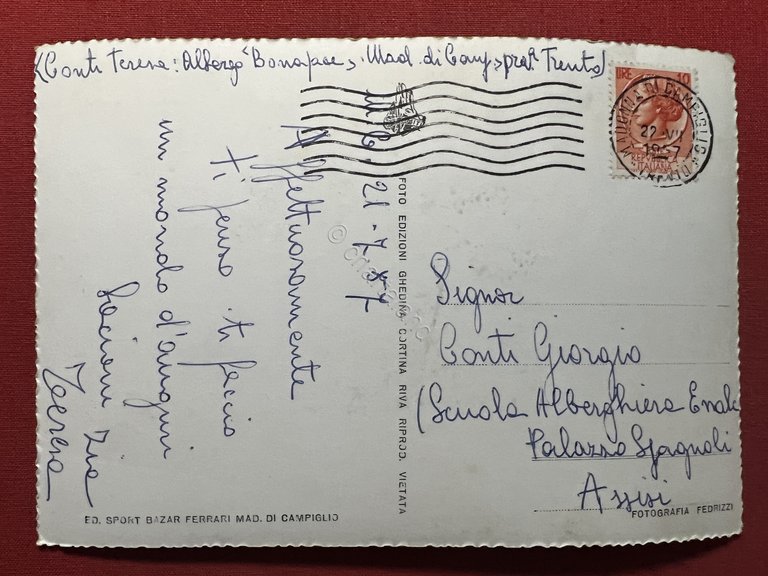 (Conti Teresa: Albergo "Bonapace". Mad. di Camp. pra Trento)
LIRE 10
MADONNA DI CAMPIGLIO
22.VII
1957
ITALIANA
21-7-57
Affettuosamente
ti penso. ti faccio
un mondo d'auguri
bacioni Zia
Teresa
FOTO EDIZIONI GHEDINA CORTINA RIVA RIPROD. VIETATA
Signor
Conti Giorgio
(Scuola Alberghiera Enalc
Palazzo Spagnoli
Assisi
ED. SPORT BAZAR FERRARI MAD. DI CAMPIGLIO
FOTOGRAFIA FEDRIZZI